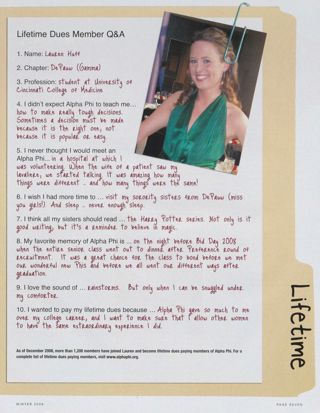 Lifetime Dues Member Q&A
1. Name: Lauren Huff
2. Chapter: DePauw (Gamma)
3. Profession: student at University of
Cincinnati College of Medicine
4. I didn't expect Alpha Phi to teach me...
how to make really tough decisions.
Sometimes a decision must be made
because it is the right one, not
because it is popular or easy.
5. I never thought I would meet an
Alpha Phi... in a hospital at which I
was volunteering. When the wife of a patient saw my
lavaliere, we started talking. It was amazing how many
things were different - and how many things were the same!
6. I wish I had more time to ... visit my sorority sisters from DePauw (miss
you girls!). And sleep - never enough sleep.
7. I think all my sisters should read ... the Harry Potter series. Not only is it
good writing, but it's a reminder to believe in magic.
8. My favorite memory of Alpha Phi is .. on the night before Bid Day 2008
when the entire senior class went out to dinner after Preference Round of
recruitment. It was a great chance for the class to bond before we met
our wonderful new Phis and before we all went our different ways after
graduation.
9. I love the sound of ... rainstorms. But only when I can be snuggled under
my comforter.
10. I wanted to pay my lifetime dues because ... Alpha Phi gave so much to me
over my college career, and I want to make sure that I allow other women
to have the same extraordinary experience I did.
As of December 2008, more than 1,200 members have joined Lauren and become lifetime dues paying members of Alpha Phi. For a
complete list of lifetime dues paying members, visit www.alphaphi.org.
Lifetime
WINTER 2009
PAGE SEVEN